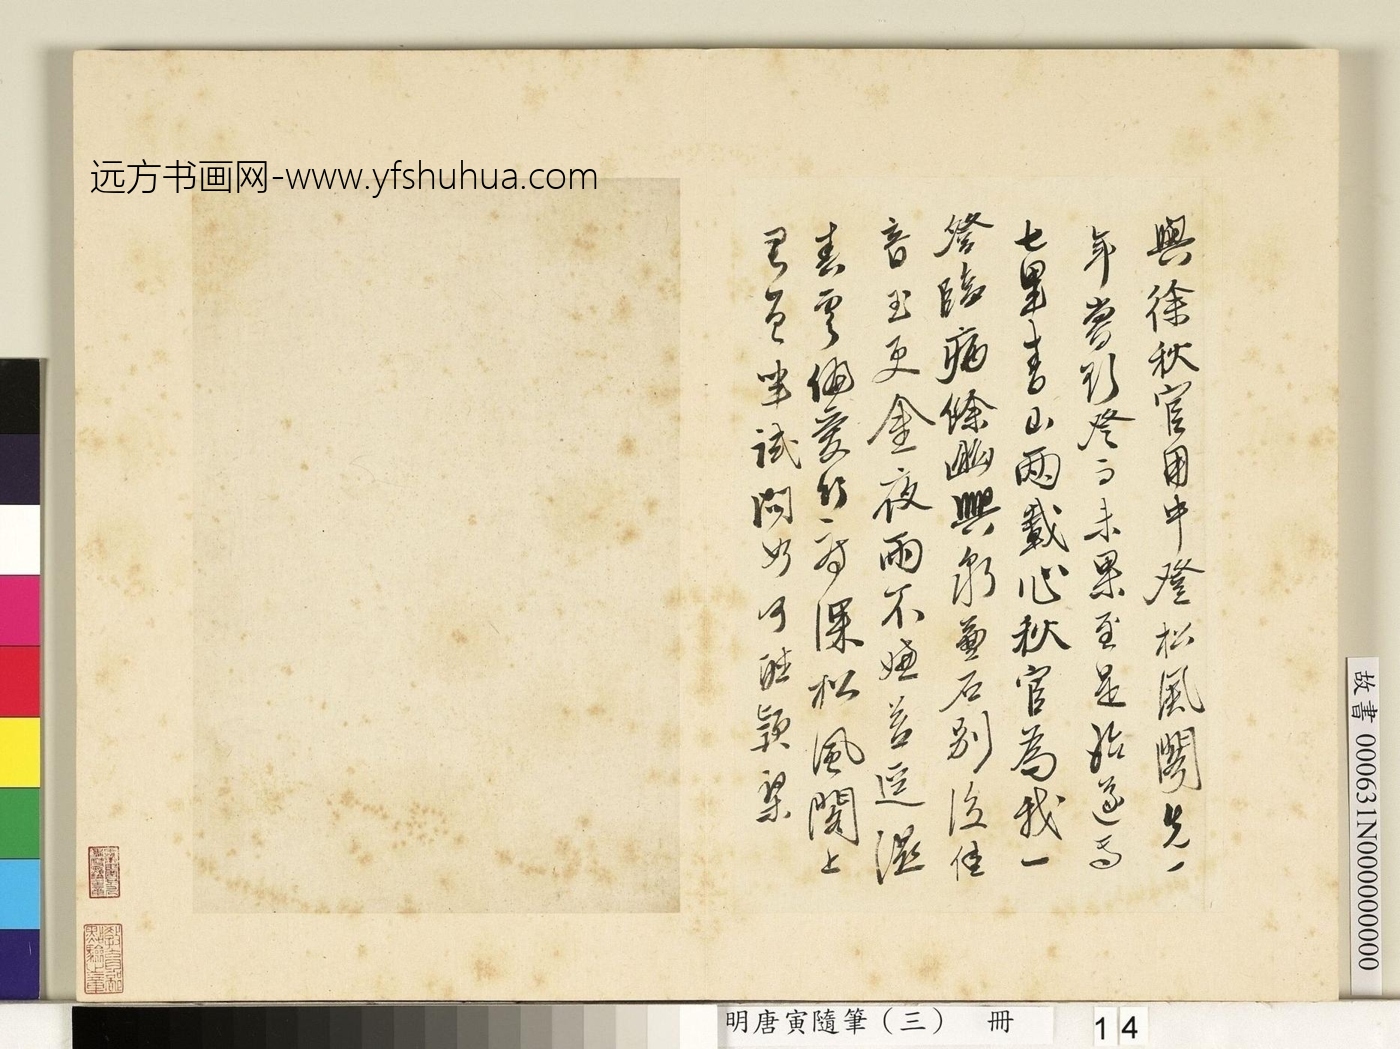 远方书画网-www.yfshuhua.com
與徐秋官用中登松風閣先一
年嘗約登而未果至是始遂焉
七里青山兩載心秋官為我一
登臨病餘幽興泉兼石別後佳
音玉更金夜雨不嫌苔逕濕
春雲偏愛竹房深松風閣上
君曾
試問如何
故書 000631N000000000
明唐寅隨筆（三） 冊 14